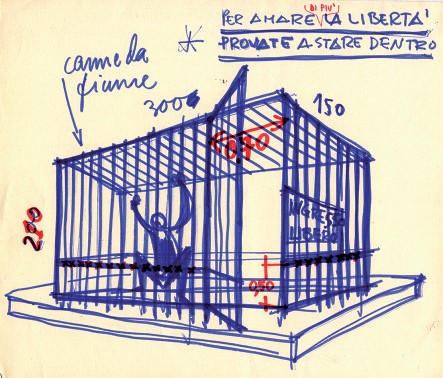 PER AMARE (DI PIU') LA LIBERTA'
PROVATE A STARE DENTRO
canne da
fiume
300
150
0,70
200
INGRESSO
LIBERO
0,50